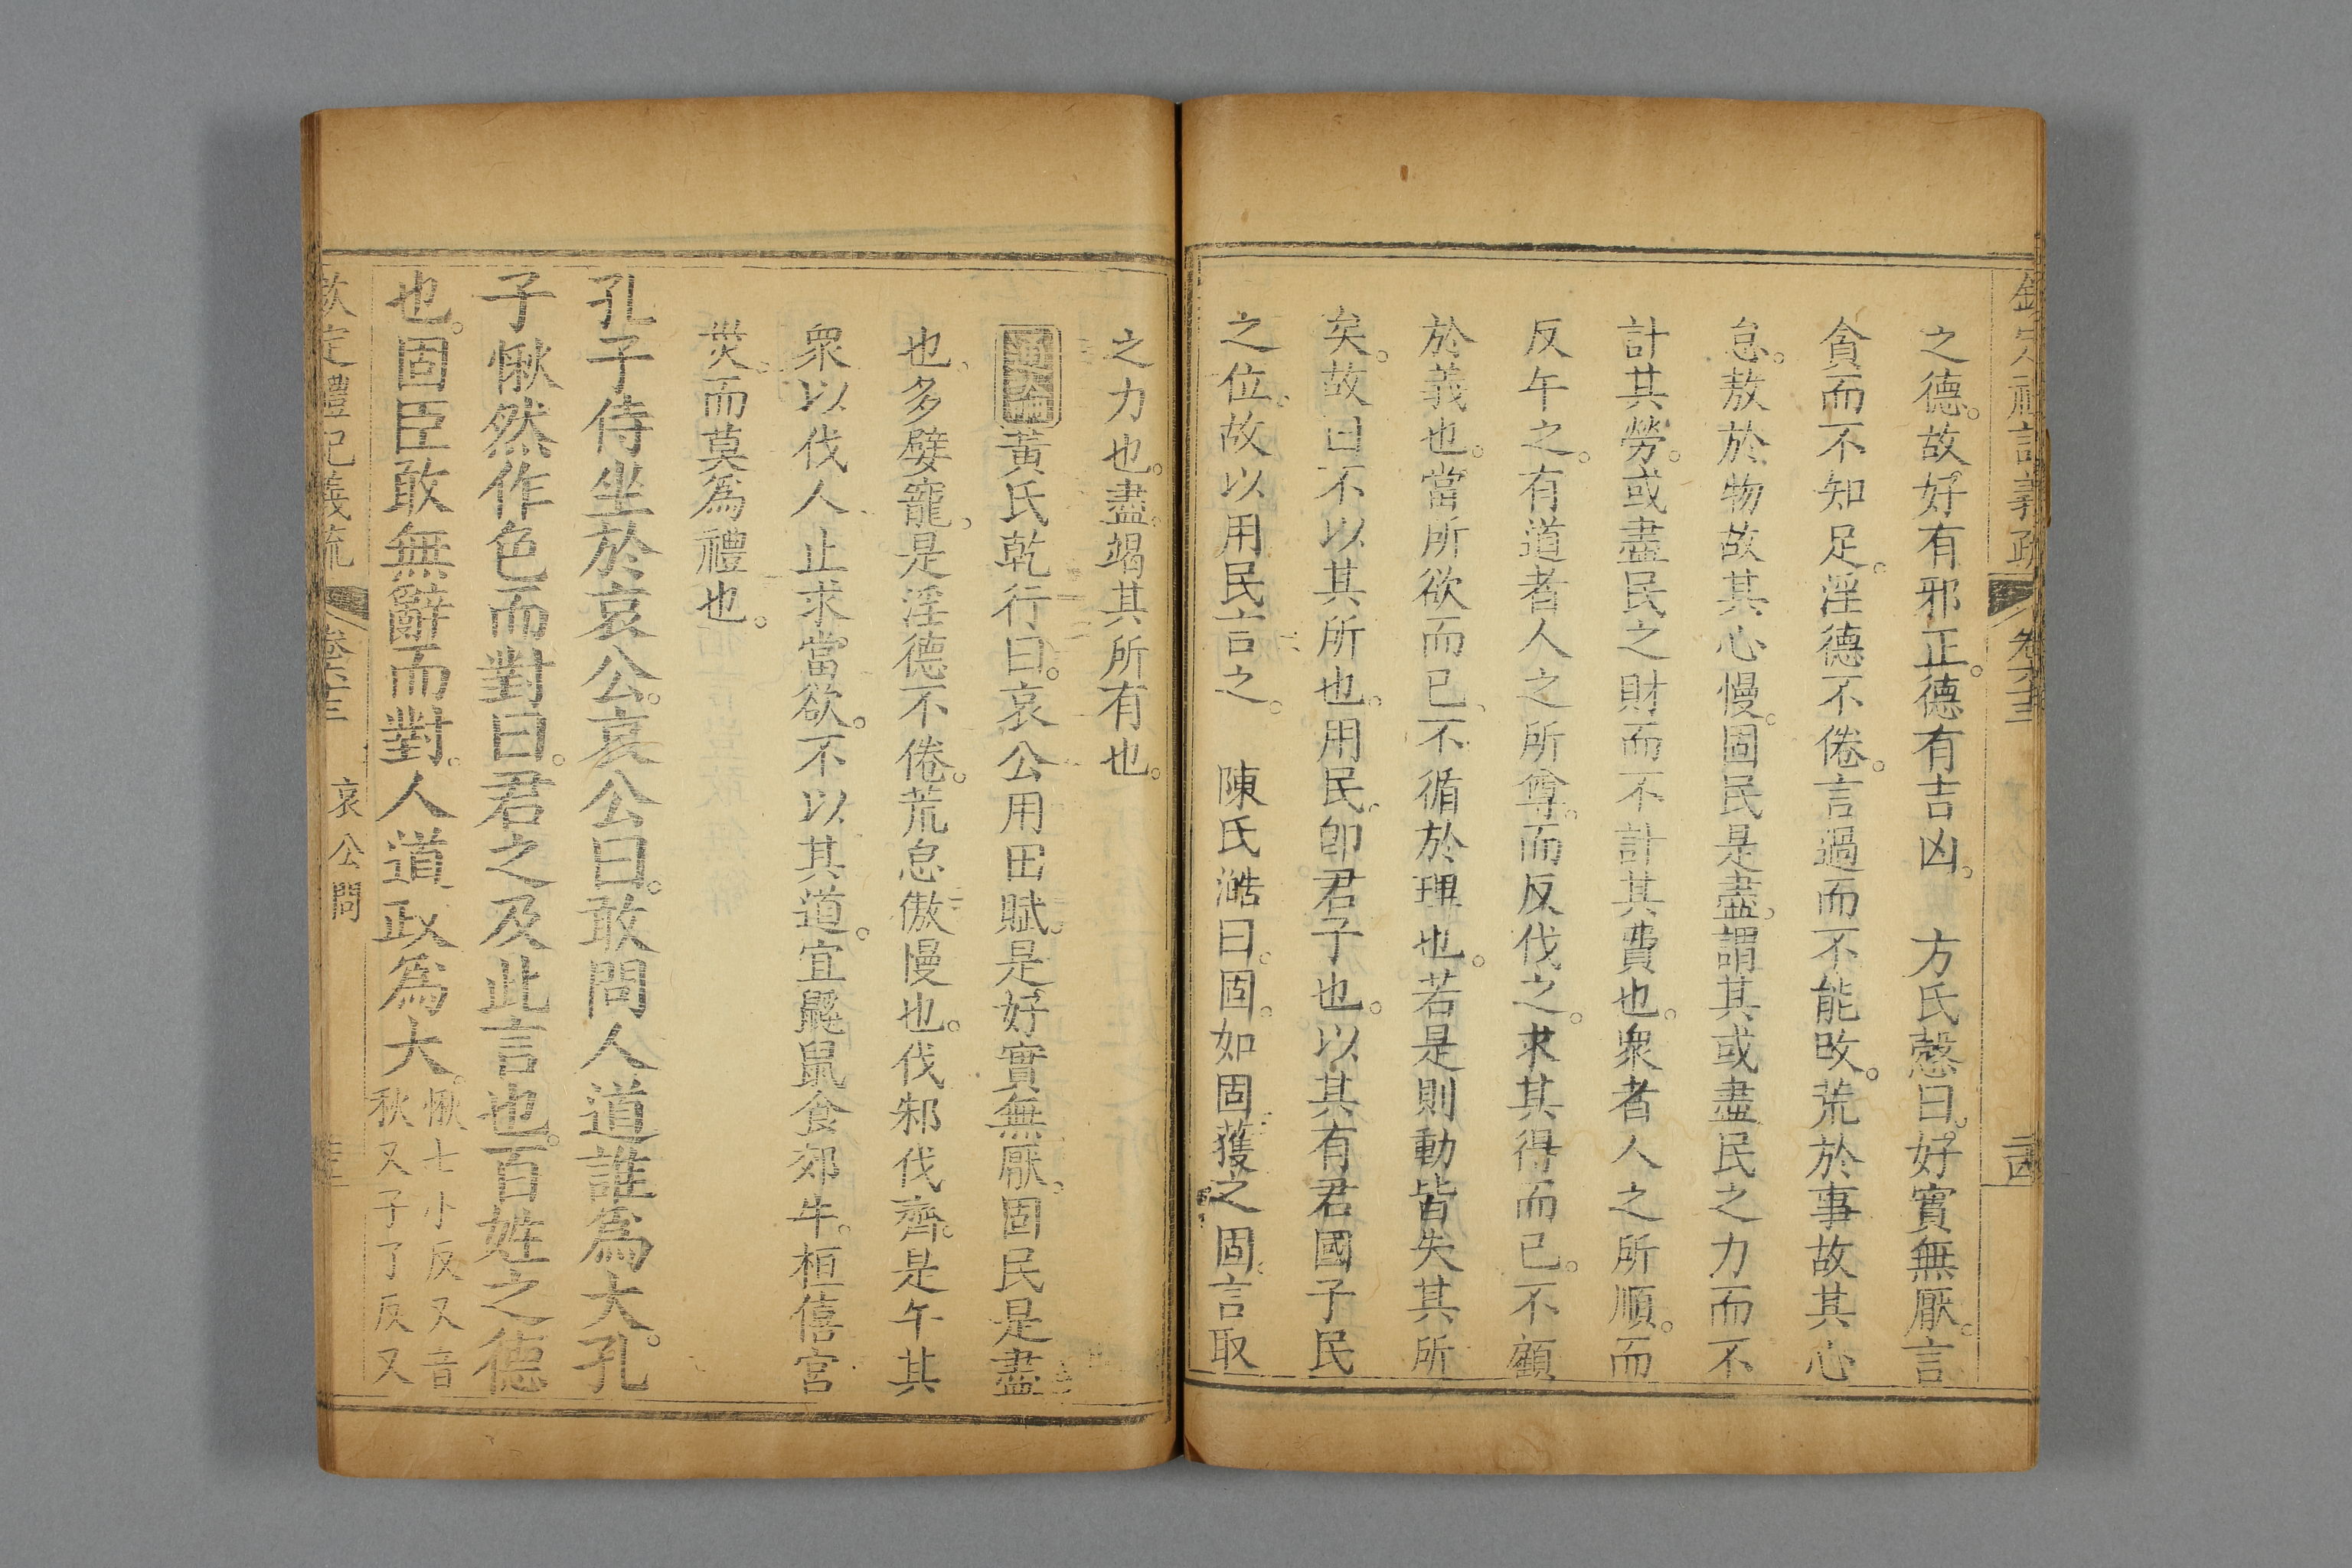 欽定禮記義疏 卷六十三
之德。故好有邪正。德有吉凶。 方氏慤曰。好實無厭。言
貪而不知足。淫德不倦。言過而不能改。荒於事故其心
怠。敖於物故其心慢。固民是盡。謂其或盡民之力而不
計其勞。或盡民之財而不計其費也。衆者人之所順。而
反午之。有道者人之所尊。而反伐之。求其得而已。不顧
於義也。當所欲而已、不循於理也。若是則動皆失其所
矣。故曰不以其所也。用民。卽君子也。以其有君國子民
之位。故以用民言之。 陳氏澔曰。固。如固獲之固。言取
之力也。盡。竭其所有也。
通論黃氏乾行曰。哀公用田賦。是好實無厭。固民是盡
也、多嬖寵、是淫德不倦。荒怠傲慢也。伐邾伐齊。是午其
衆以伐人、止求當欲。不以其道。宜鼷鼠食郊牛。桓僖宮
災。而莫爲禮也。
孔子侍坐於哀公。哀公曰。敢問人道誰爲大。孔
子愀然作色而對曰。君之及此言也。百姓之德
也。固臣敢無辭而對。人道政爲大。愀七小反又音
秋又子了反又
欽定禮記義疏 卷六十三 哀公問